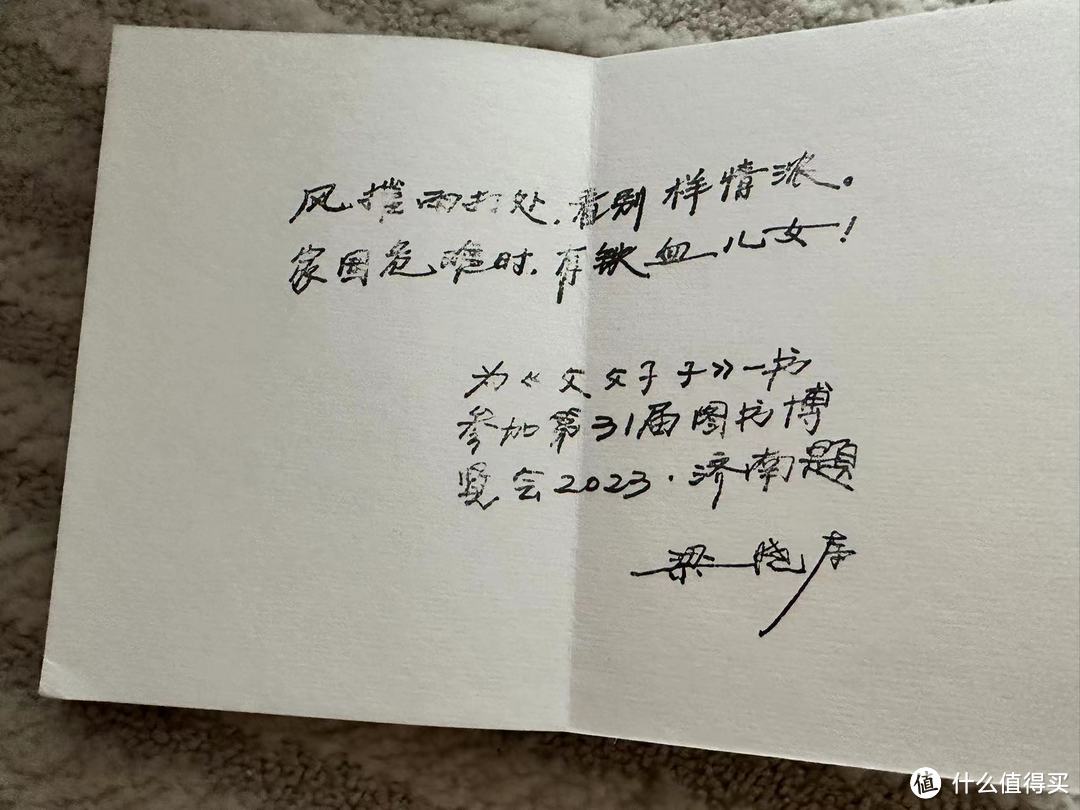 风摧雨打处,看别样情浓。
家国危难时,有铁血儿女!
为《父父子子》一书
参加第31届图书博
览会2023·济南题
梁晓声
值 什么值得买